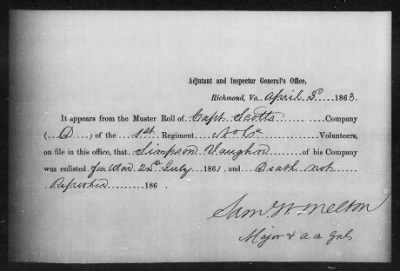 Adjutant and Inspector General's Office,
Richmond, Va. April 3d 1863.
It appears from the Muster Roll of Capt. Scotts Company
( D ) of the 1st Regiment Volunteers,
on file in this office, that Simpson Vaughn of his Company
was enlisted for War 22d July 1861 and Death not
Reported 186 .
Sam. W. Melton
Major & a a Genl